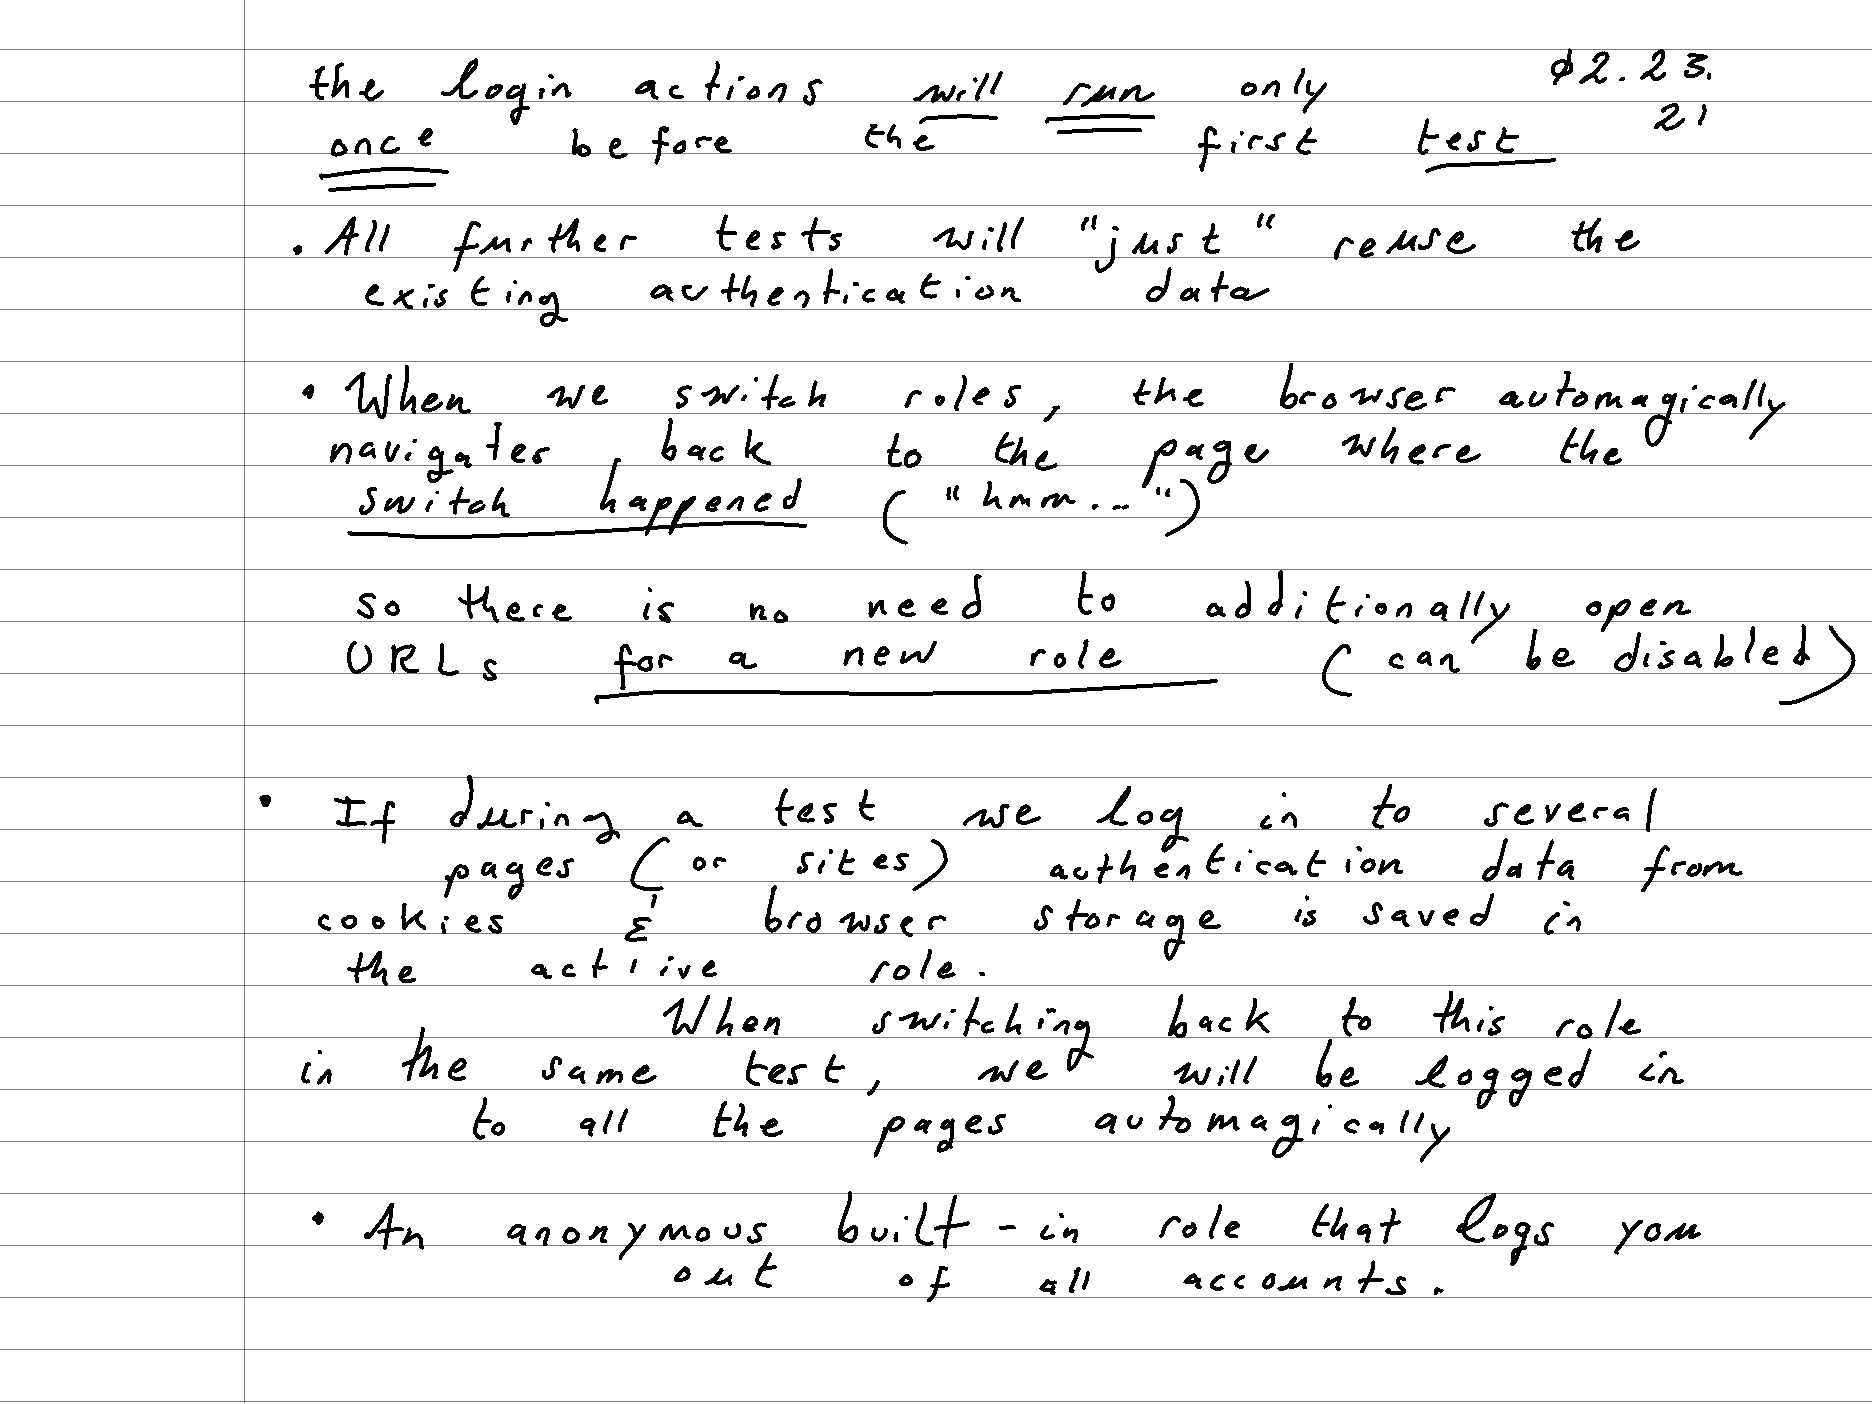 the login actions will run only ϕ2.23.
21
once before the first test
. All further tests will "just" reuse the
existing authentication data
• When we switch roles, the browser automagically
navigates back to the page where the
switch happened ("hmm...")
so there is no need to additionally open
URLs for a new role (can be disabled)
• If during a test we log in to several
pages (or sites) authentication data from
cookies & browser storage is saved in
the act i ive role.
When switching back to this role
in the same test, we will be logged in
to all the pages automagically
• An anonymous built-in role that logs you
out of all accounts.